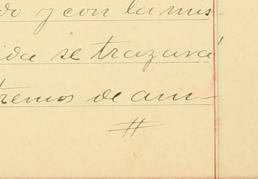 do y con la mis
ida se trazara
tremos de am-
#